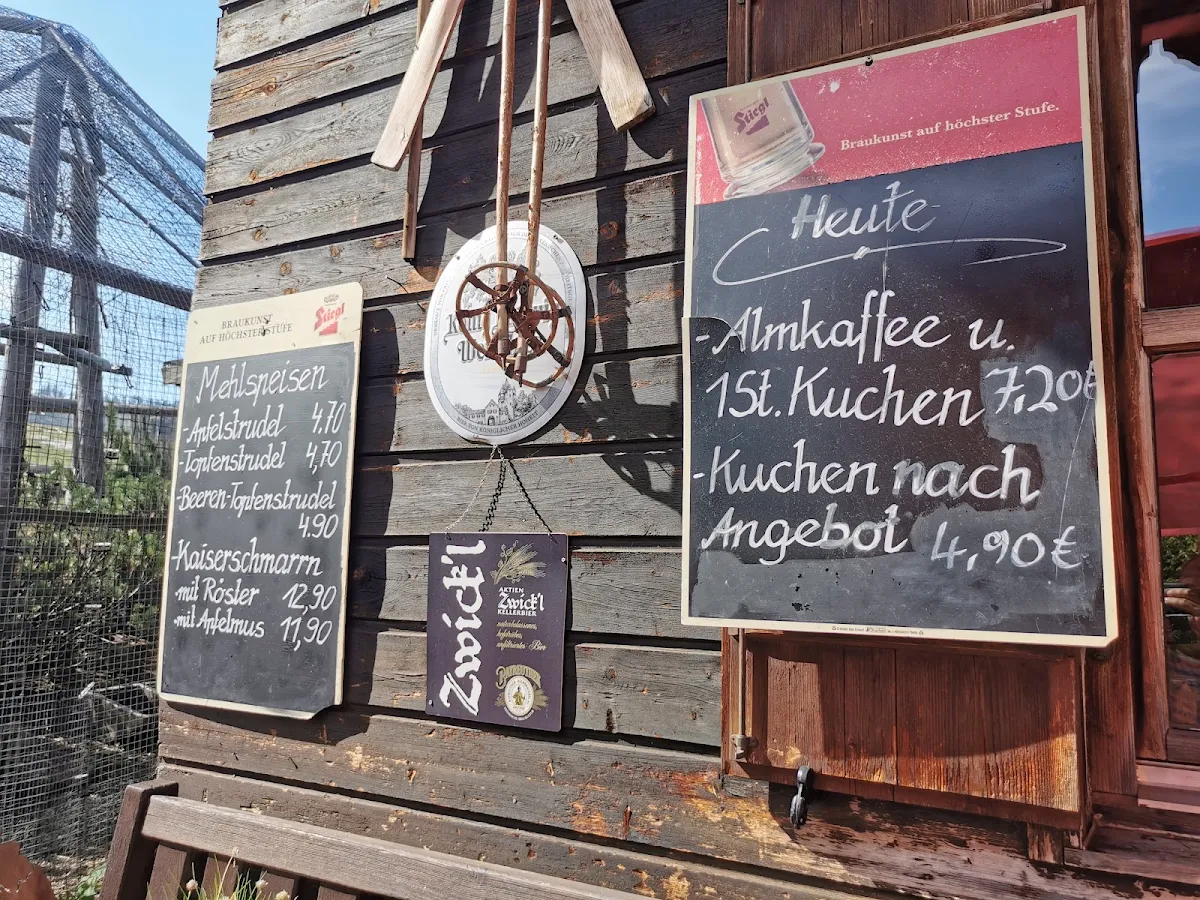 BRAUKUNST
AUF HÖCHSTER STUFE
Stiegl
Mehlspeisen
-Apfelstrudel 4.70
-Topfenstrudel 4,70
-Beeren-Topfenstrudel
4.90
-Kaiserschmarrn
-mit Röster 12,90
-mit Apfelmus 11,90
Zwick'l
AKTIEN
Zwick'l
KELLERBIER
naturbelassenes,
hefetrübes,
unfiltriertes Bier
Stiegl
Braukunst auf höchster Stufe.
Heute
-Almkaffee u.
1St. Kuchen 7,20€
-Kuchen nach
Angebot 4,90€